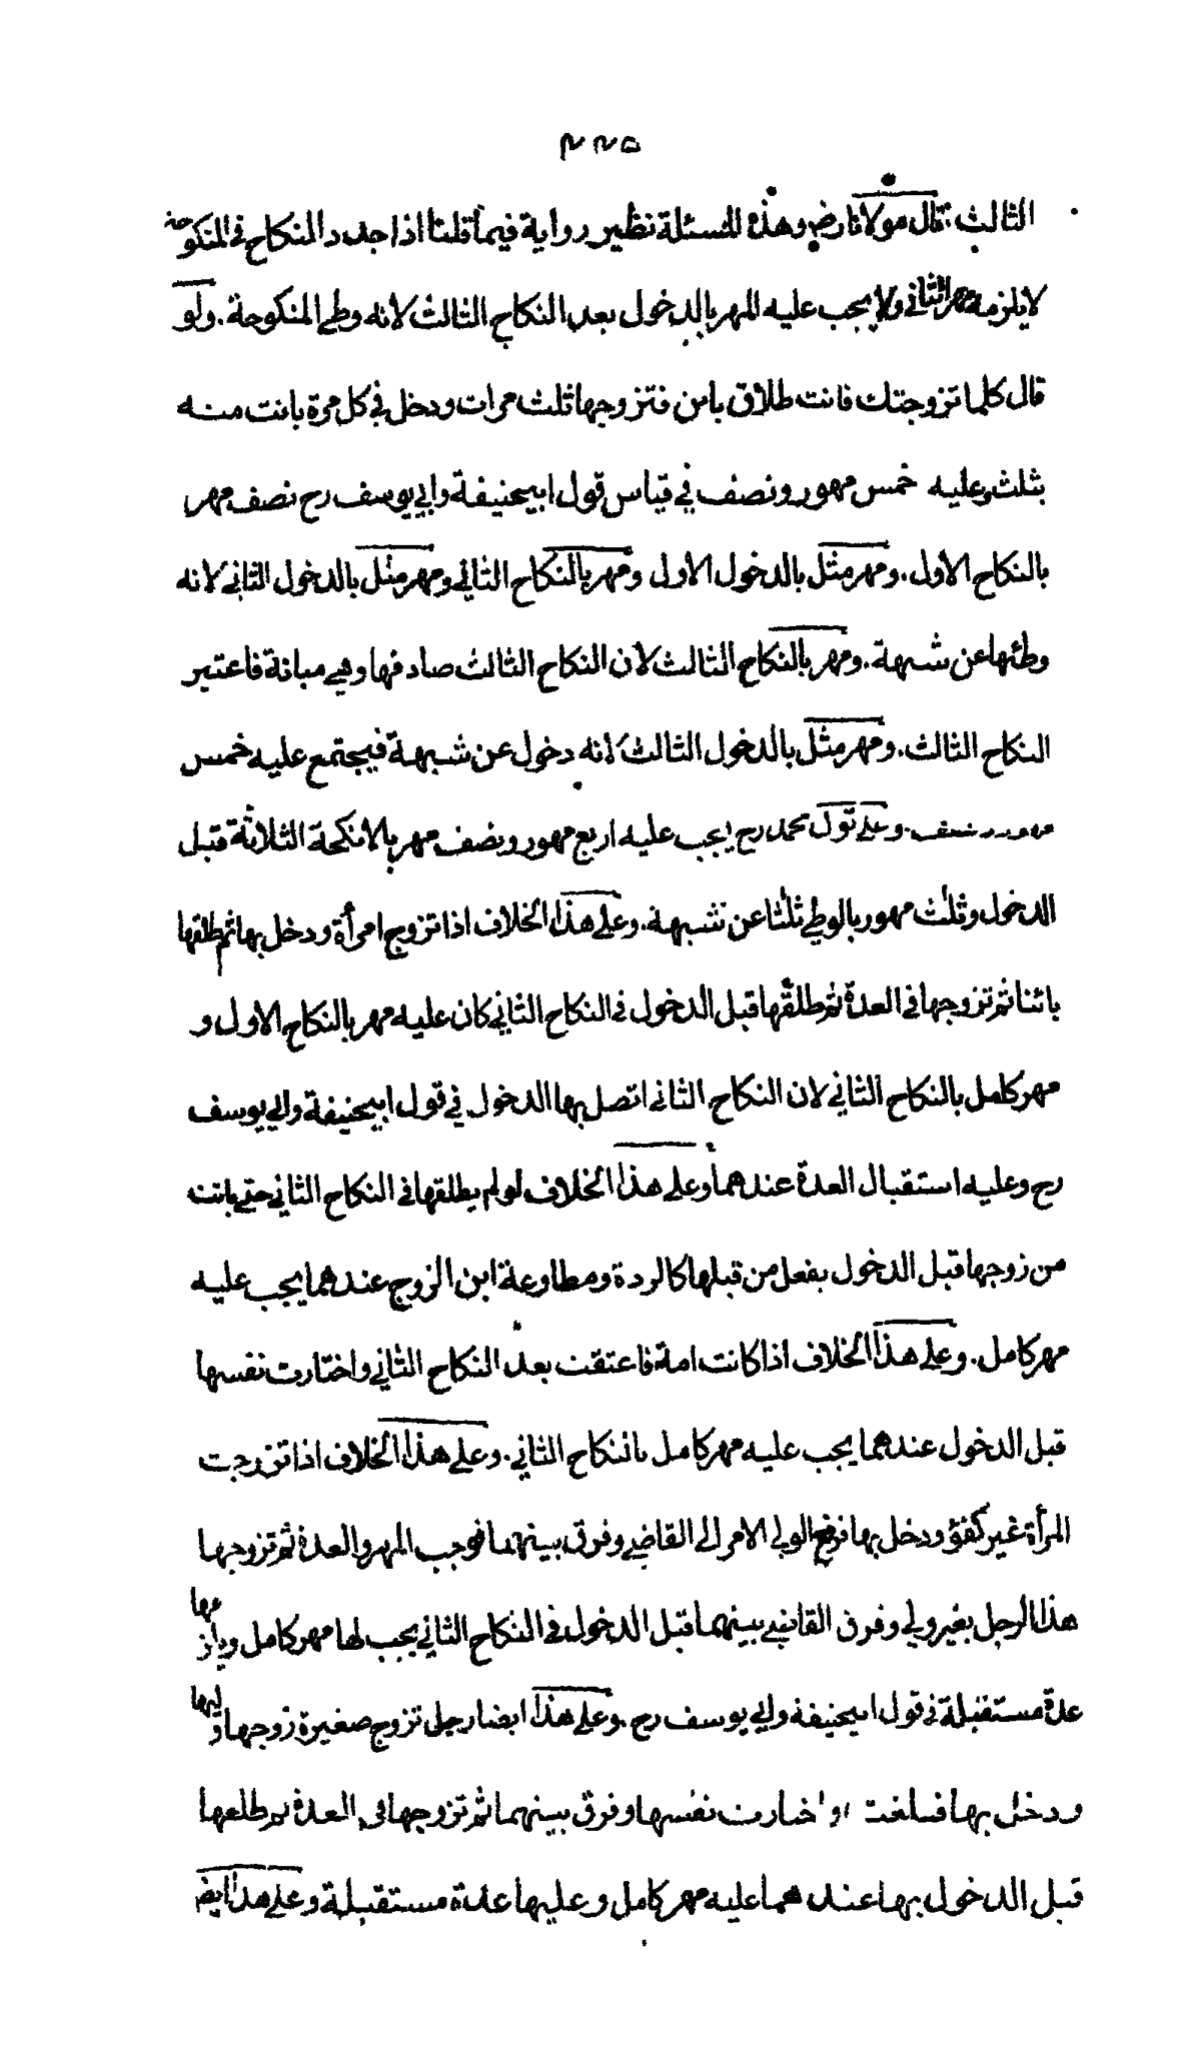 ٣٢٥
الثالث . قال مولانا رض وهذه المسئلة نظير رواية فيما قلنا اذا جدد النكاح في المنكوحة
لا يلزمه مهر الثاني ولا يجب عليه المهر بالدخول بعد النكاح الثالث لانه وطئ المنكوحة . ولو
قال كلما تزوجتك فانت طلاق باين فتزوجها ثلث مرات ودخل في كل مرة بانت منه
بثلث وعليه خمس مهور ونصف في قياس قول ابيحنيفة وابي يوسف رح نصف مهر
بالنكاح الاول . ومهر مثل بالدخول الاول ومهر بالنكاح الثاني ومهر مثل بالدخول الثاني لانه
وطئها عن شبهة . ومهر بالنكاح الثالث لان النكاح الثالث صادفها وهي مبانة فاعتبر
النكاح الثالث . ومهر مثل بالدخول الثالث لانه دخول عن شبهة فيجتمع عليه خمس
مهور ونصف . وعلى قول محمد رح يجب عليه اربع مهور ونصف مهر بالانكحة الثلاثة قبل
الدخول وثلث مهور بالوطي ثلثا عن شبهة . وعلى هذا الخلاف اذا تزوج امرأة ودخل بها ثم طلقها
بائنا ثم تزوجها في العدة ثم طلقها قبل الدخول في النكاح الثاني كان عليه مهر بالنكاح الاول و
مهر كامل بالنكاح الثاني لان النكاح الثاني اتصل بها الدخول في قول ابيحنيفة وابي يوسف
رح وعليه استقبال العدة عندهما وعلى هذا الخلاف لو لم يطلقها في النكاح الثاني حتى بانت
من زوجها قبل الدخول بفعل من قبلها كالردة ومطاوعة ابن الزوج عندهما يجب عليه
مهر كامل . وعلى هذا الخلاف اذا كانت امة فاعتقت بعد النكاح الثاني واختارت نفسها
قبل الدخول عندهما يجب عليه مهر كامل بالنكاح الثاني . وعلى هذا الخلاف اذا تزوجت
المرأة غير كفؤ ودخل بها فرفع الولي الامر الى القاضي وفرق بينهما فوجب المهر والعدة ثم تزوجها
هذا الرجل بغير ولي وفرق القاضي بينهما قبل الدخول في النكاح الثاني يجب لها مهر كامل ويلزمها
عدة مستقبلة في قول ابيحنيفة وابي يوسف رح . وعلى هذا ايضا رجل تزوج صغيرة زوجها وليها
ودخل بها فبلغت واختارت نفسها وفرق بينهما ثم تزوجها في العدة ثم طلقها
قبل الدخول بها عندهما عليه مهر كامل وعليها عدة مستقبلة وعلى هذا ايض